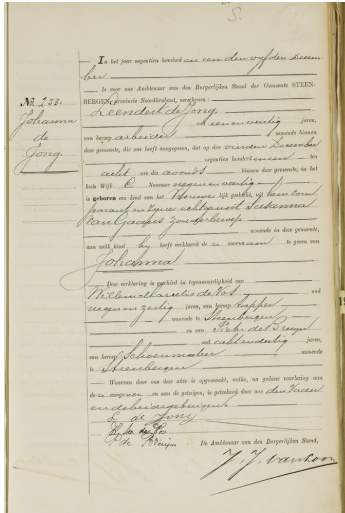 5.
In het jaar negentien honderd een den vijfden Decem
ber
is voor ons Ambtenaar van den Burgerlijken Stand der Gemeente STEEN-
BERGEN, Provincie Noordbrabant, verschenen:
No. 233.
Johanna
de
Jong.
Leendert de Jong,
oud een en veertig jaren,
van beroep arbeider wonende binnen
deze gemeente, die ons heeft aangegeven, dat op den vierden December
negentien honderd een ten
acht ure des avonds binnen deze gemeente, in het
huis Wijk C Nummer negen en veertig
is geboren een kind van het vrouwelijk geslacht, uit hem com
parant en zijne echtgenoot Susanna
van zonder beroep
wonende in deze gemeente,
aan welk kind hij heeft verklaard de voornaam te geven van
Johanna
Deze verklaring is geschied in tegenwoordigheid van
Willem de Vos oud
negen en zestig jaren, van beroep tapper
wonende te Steenbergen
en van Peter de Bruijn
oud acht en dertig jaren,
van beroep Schoenmaker wonende
te Steenbergen
Waarvan door ons deze akte is opgemaakt, welke, na gedane voorlezing aan
de comparant en aan de getuigen, is geteekend door ons den Vader
en de beide getuigen
L de Jong
de Vos
P de Bruijn
De Ambtenaar van den Burgerlijken Stand,
J. J. van Loon